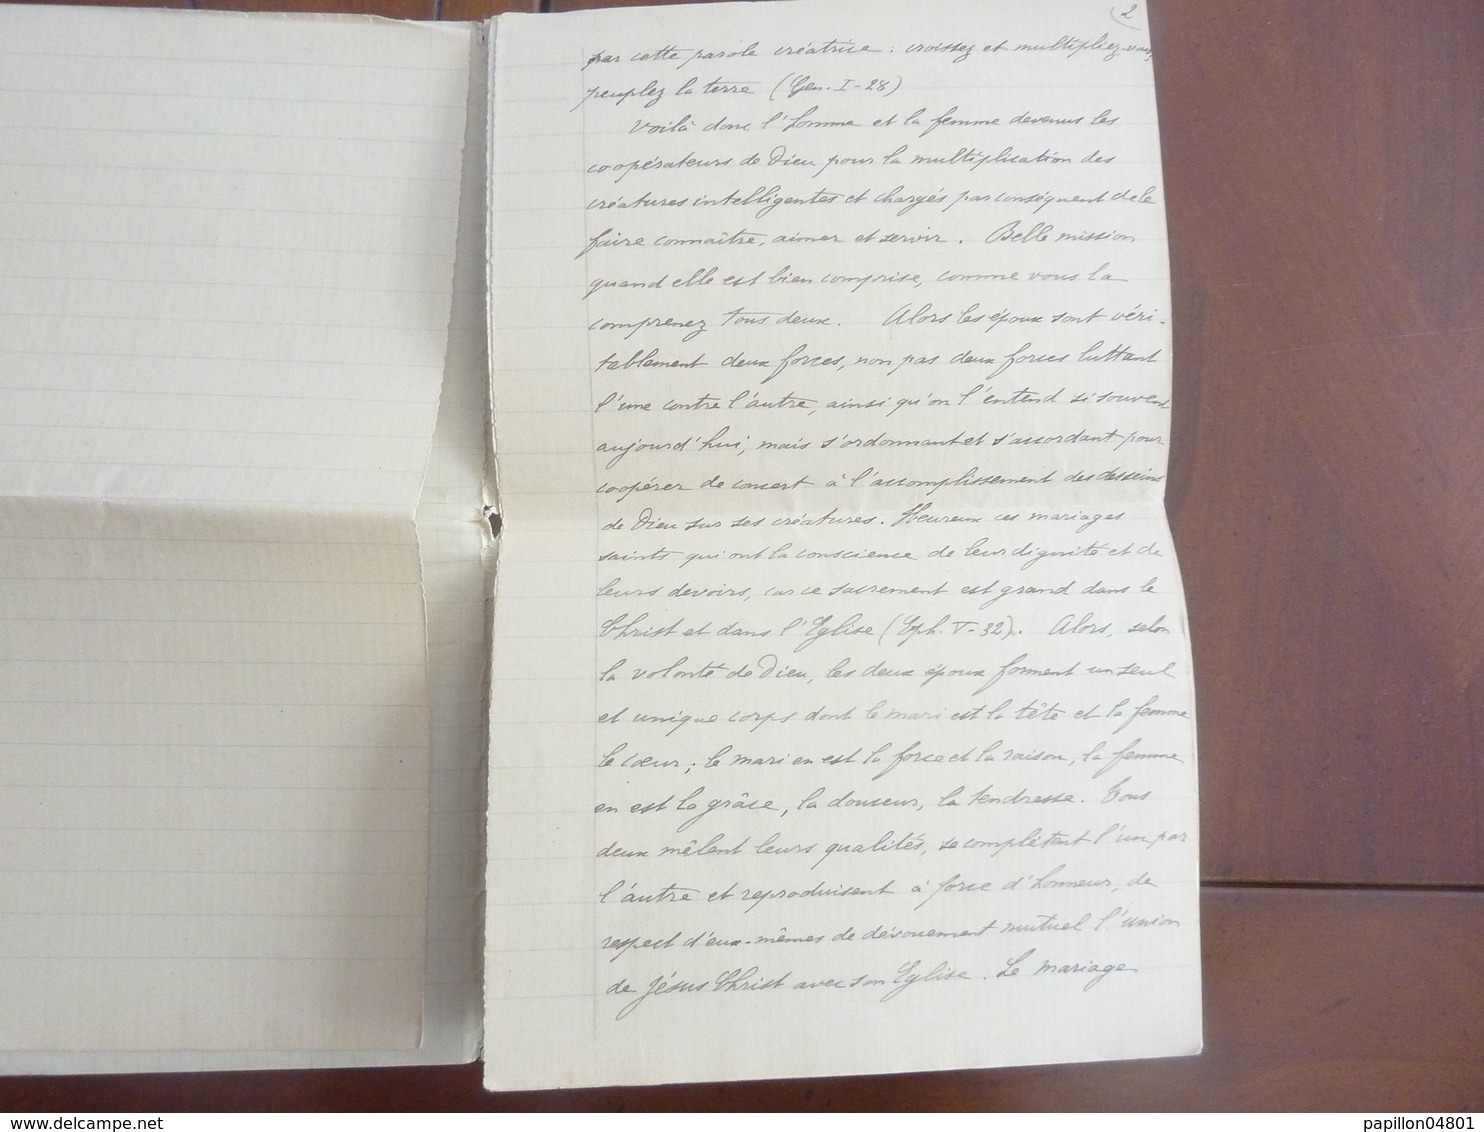 2
par cette parole créatrice : croissez et multipliez-vous,
peuplez la terre (Gen. I-28)
Voilà donc l'homme et la femme devenus les
coopérateurs de Dieu pour la multiplication des
créatures intelligentes et chargés par conséquent de le
faire connaître, aimer et servir. Belle mission
quand elle est bien comprise, comme vous la
comprenez tous deux. Alors les époux sont véri-
tablement deux forces, non pas deux forces luttant
l'une contre l'autre, ainsi qu'on l'entend si souvent
aujourd'hui, mais s'ordonnant et s'accordant pour
coopérer de concert à l'accomplissement des desseins
de Dieu sur ses créatures. Heureux ces mariages
saints qui ont la conscience de leur dignité et de
leurs devoirs, car ce sacrement est grand dans le
Christ et dans l'Eglise (Eph. V-32). Alors, selon
la volonté de Dieu, les deux époux forment un seul
et unique corps dont le mari est la tête et la femme
le cœur ; le mari en est la force et la raison, la femme
en est la grâce, la douceur, la tendresse. Tous
deux mêlent leurs qualités, se complètent l'un par
l'autre et reproduisent à force d'honneur, de
respect d'eux-mêmes de dévouement mutuel l'union
de Jésus Christ avec son Eglise. Le mariage
www.delcampe.net
papillon04801